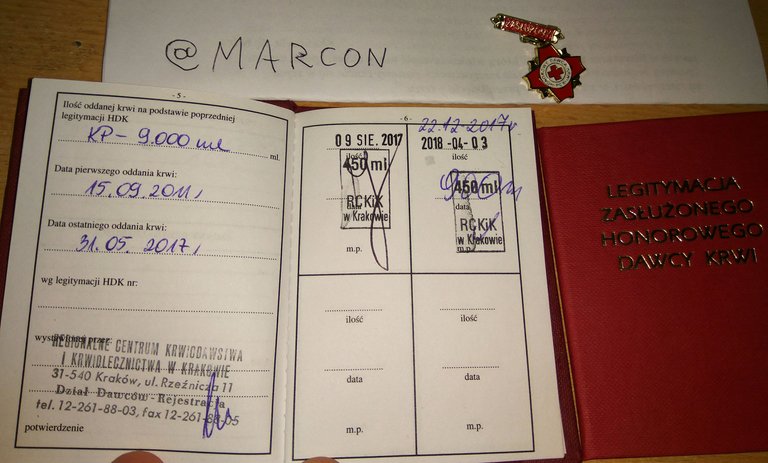 @MARCON
- 5 -
Ilość oddanej krwi na podstawie poprzedniej
legitymacji HDK
KP - 9.000 ml
ml.
Data pierwszego oddania krwi:
15.09.2011r
Data ostatniego oddania krwi:
31.05.2017r
wg legitymacji HDK nr:
wystawionej przez:
REGIONALNE CENTRUM KRWIODAWSTWA
I KRWIOLECZNICTWA W KRAKOWIE
31-540 Kraków, ul. Rzeźnicza 11
Dział Dawców-Rejestracja
tel. 12-261-88-03, fax 12-261-88-05
potwierdzenie
- 6 -
09 SIE. 2017
ilość
450 ml
data
RCKiK
w Krakowie
m.p.
22.12.2017r
2018-04-03
ilość
450 ml
900m
data
RCKiK
w Krakowie
m.p.
ilość
data
m.p.
ilość
data
m.p.
LEGITYMACJA
ZASŁUŻONEGO
HONOROWEGO
DAWCY KRWI